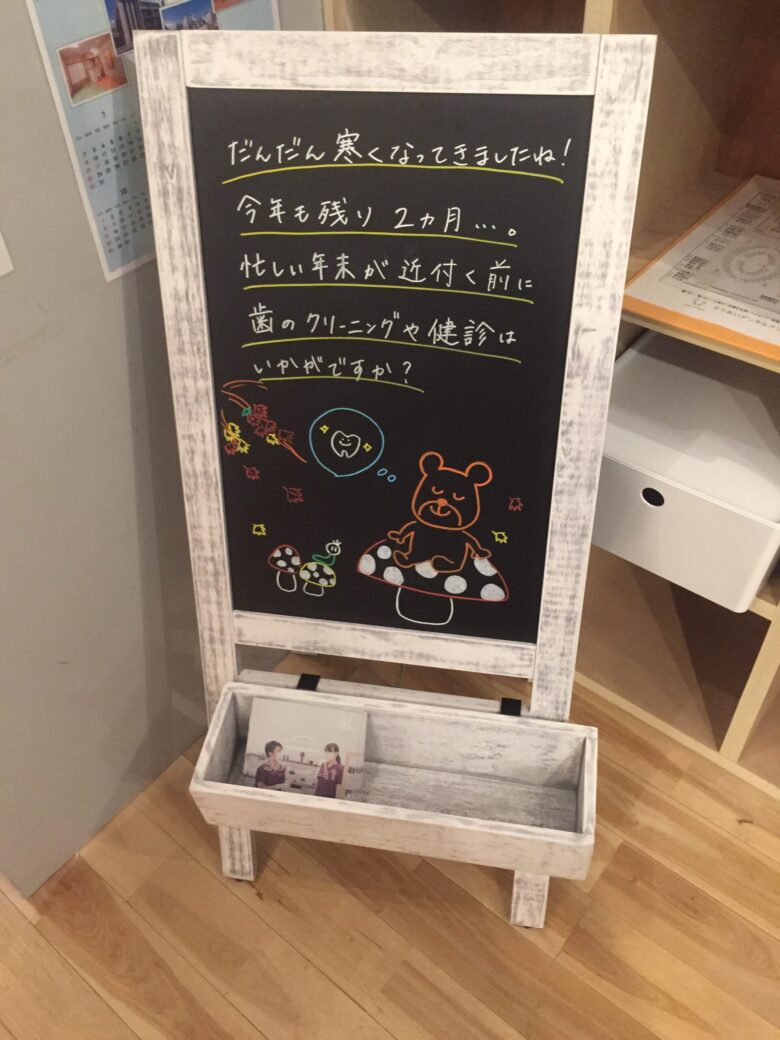 だんだん寒くなってきましたね!
今年も残り 2ヵ月…。
忙しい年末が近付く前に
歯のクリーニングや健診は
いかがですか?